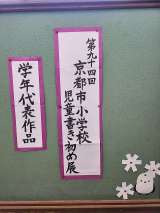 第九十四回
京都市小学校
児童書き初め展
学年代表作品